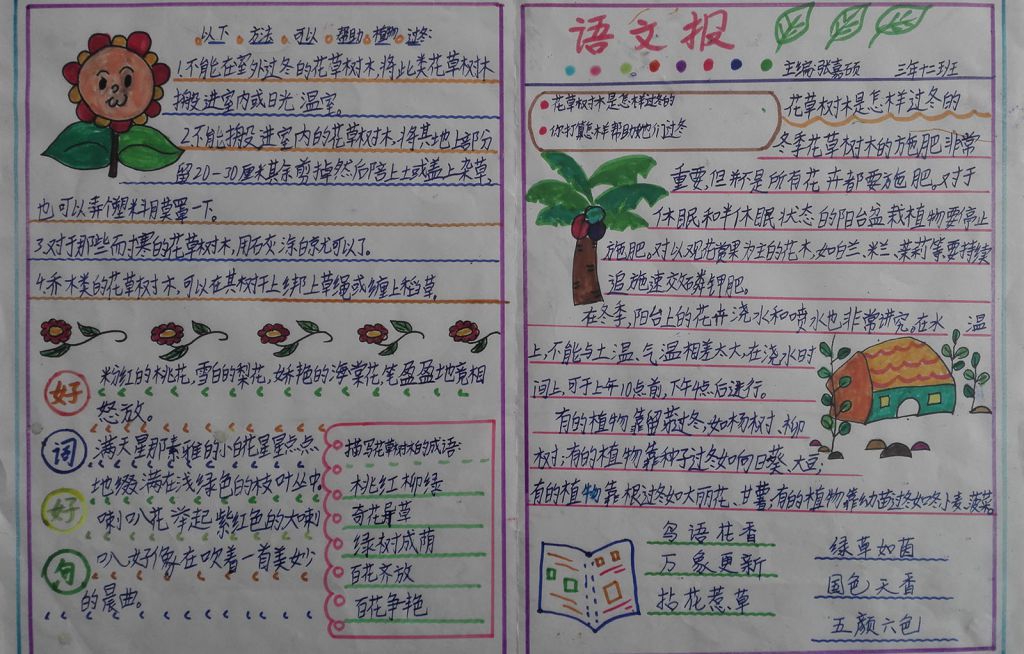 以下方法可以帮助植物过冬:
1.不能在室外过冬的花草树木,将此类花草树木
搬进室内或日光温室。
2.不能搬进室内的花草树木,将其地上部分
留20-30厘米其余剪掉然后陪上土或盖上杂草,
也可以弄个塑料膜罩一下。
3.对于那些耐寒的花草树木,用石灰涂白就可以了。
4.乔木类的花草树木,可以在其树干上绑上草绳或缠上稻草。
好词好句
粉红的桃花,雪白的梨花,娇艳的海棠花,笔盈盈地竟相
怒放。
满天星那素雅的小白花星星点点
地缀满在浅绿色的枝叶丛中
喇叭花举起紫红色的大喇
叭,好像在吹着一首美妙
的晨曲。
描写花草树木的成语:
桃红柳绿
奇花异草
绿树成荫
百花齐放
百花争艳
语文报
主编:张嘉硕 三年十二班
花草树木是怎样过冬的
你打算怎样帮助她们过冬
花草树木是怎样过冬的
冬季花草树木的施肥非常
重要,但并不是所有花卉都要施肥。对于
休眠和半休眠状态的阳台盆栽植物要停止
施肥。对以观花赏果为主的花木,如白兰、米兰、茉莉等,要持续
追施速效磷钾肥。
在冬季,阳台上的花卉浇水和喷水也非常讲究。在水温
上,不能与土温、气温相差太大,在浇水时
间上,可于上午10点前,下午4点后进行。
有的植物靠留茎过冬,如杨树、柳
树;有的植物靠种子过冬如向日葵、大豆;
有的植物靠根过冬如大丽花、甘薯;有的植物靠幼苗过冬如冬小麦、菠菜
鸟语花香
万象更新
拈花惹草
绿草如茵
国色天香
五颜六色